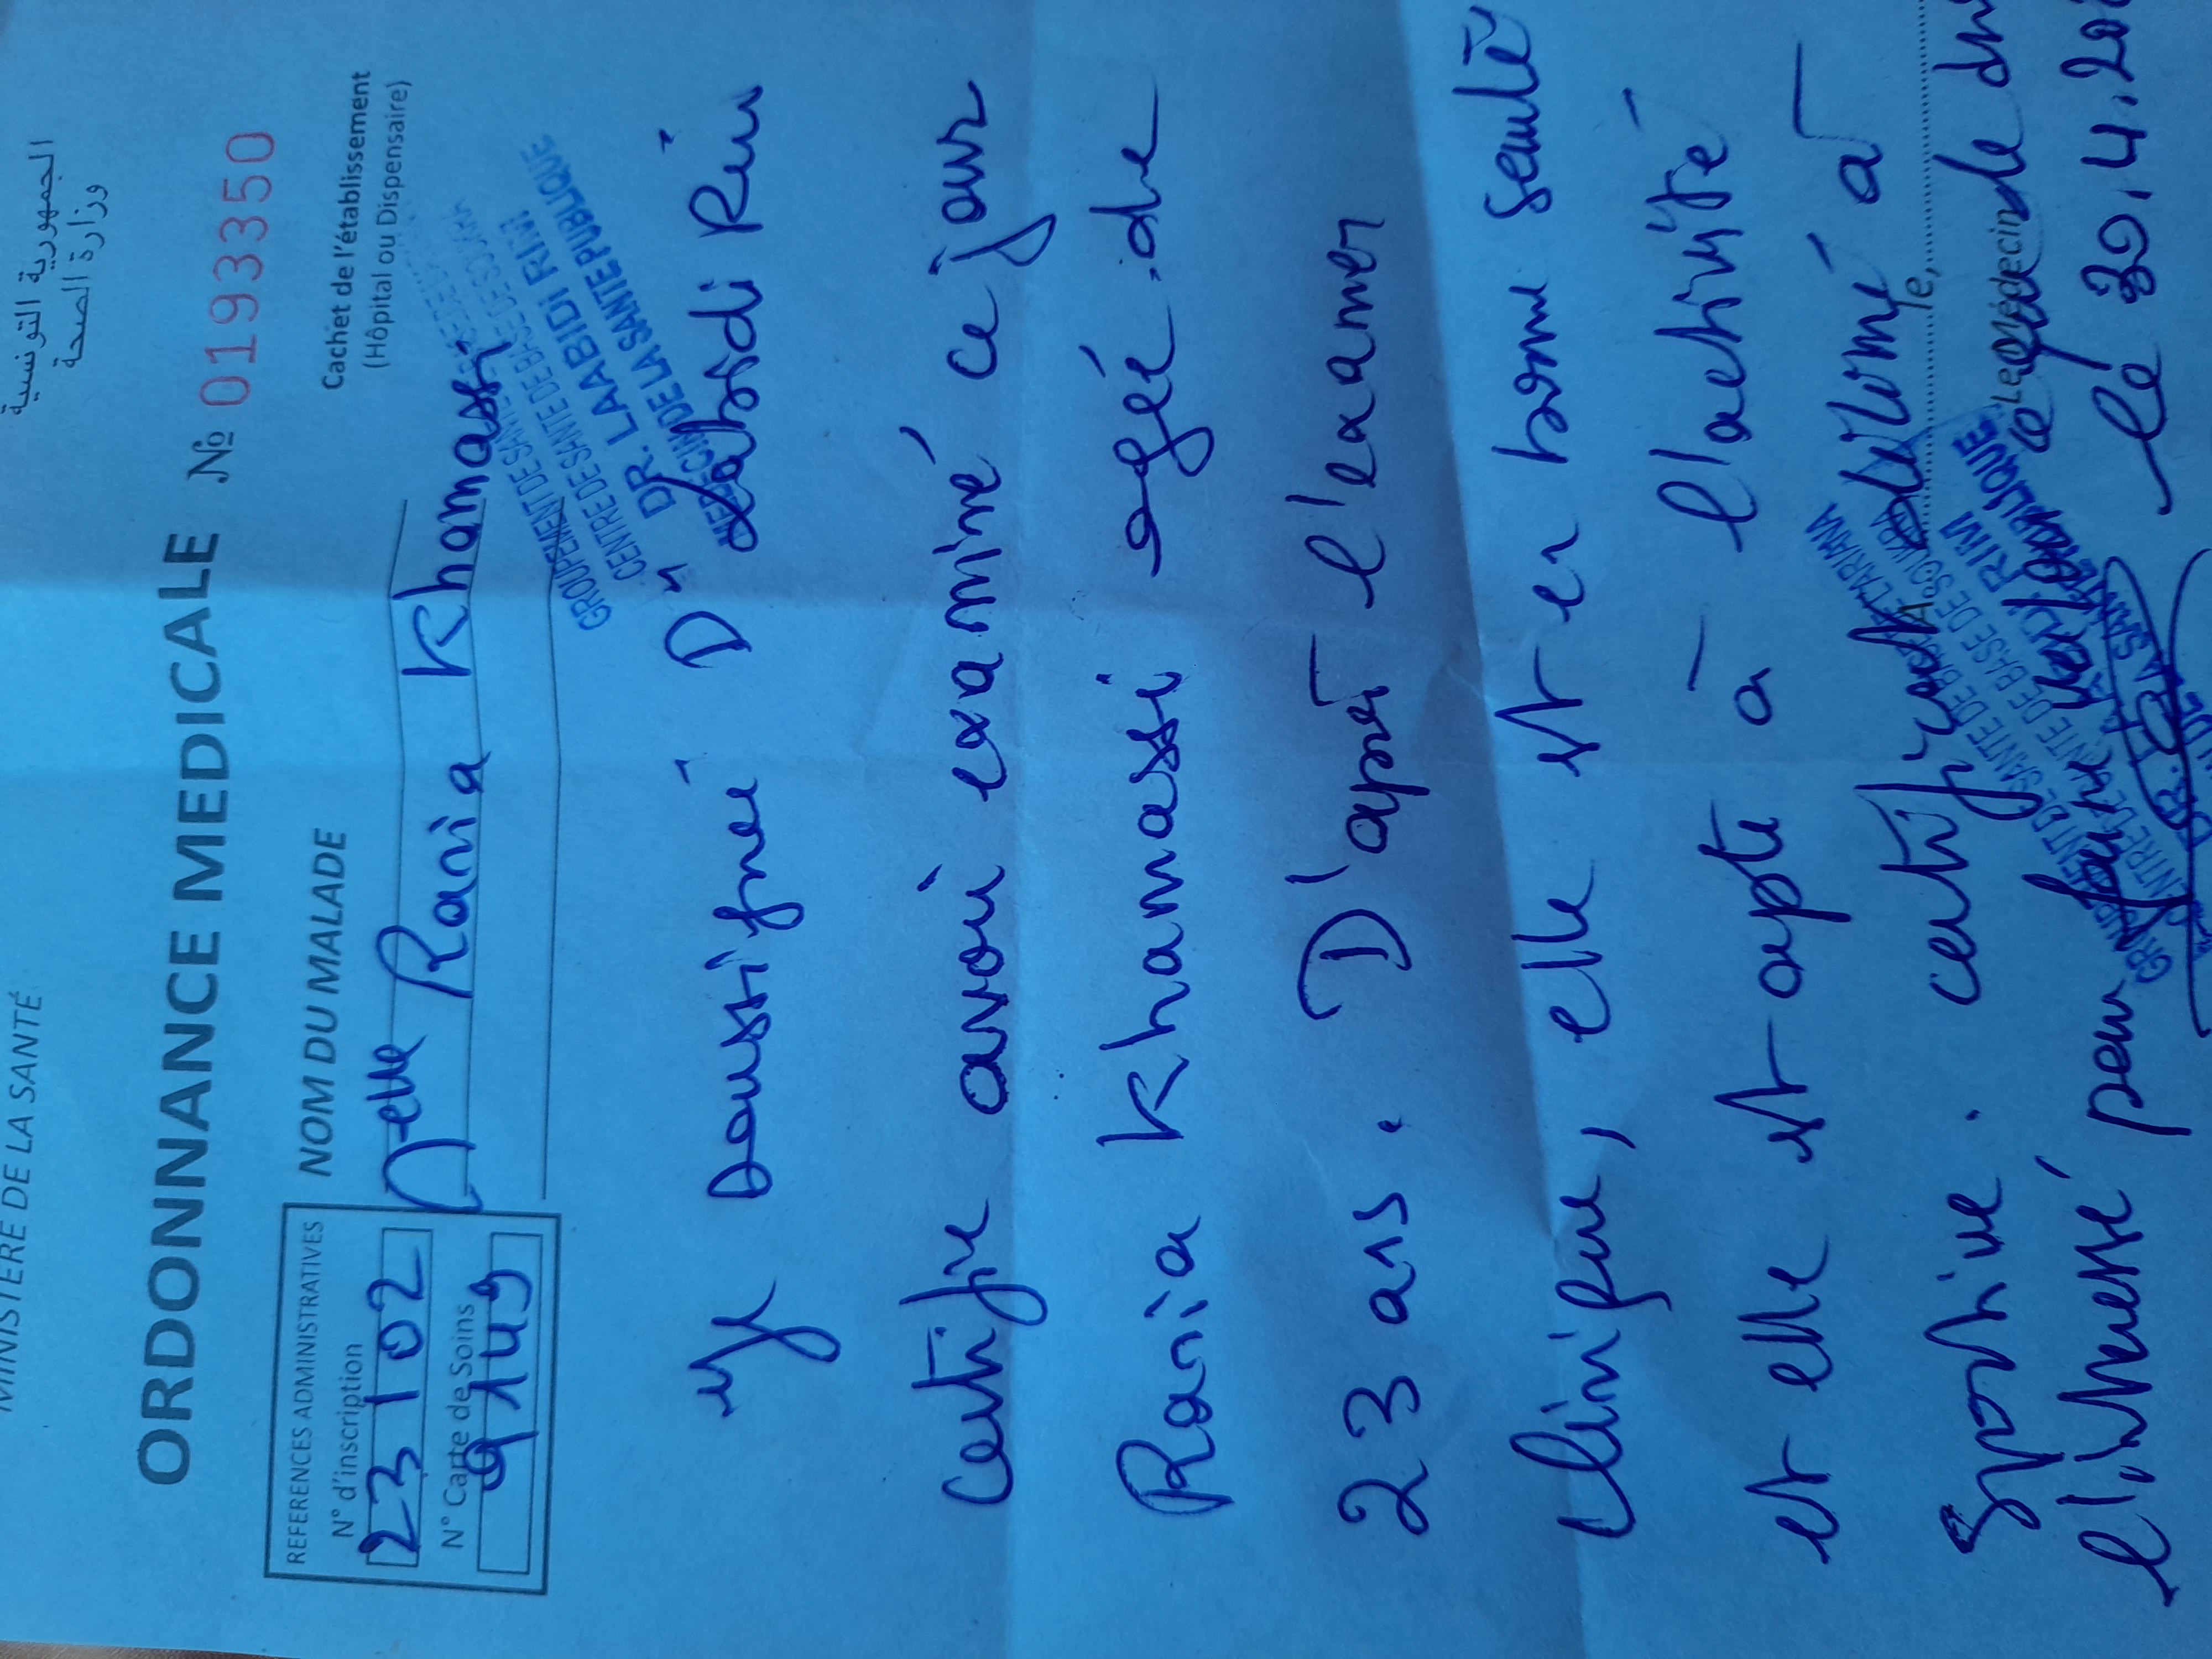 الجمهورية التونسية
وزارة الصحة
MINISTÈRE DE LA SANTÉ
ORDONNANCE MEDICALE № 0193350
REFERENCES ADMINISTRATIVES
N° d'inscription
23102
N° Carte de Soins
9149
NOM DU MALADE
Melle Rania Khamassi
Cachet de l'établissement
(Hôpital ou Dispensaire)
GROUPEMENT DE SANTE DE BASE DE L'ARIANA
CENTRE DE SANTE DE BASE DE SOUKRA
DR. LAABIDI RIM
MEDECIN DE LA SANTE PUBLIQUE
Je soussigné Dr Laabidi Rim
certifie avoir examiné ce jour
Rania Khamassi agée de
23 ans. D'après l'examen
clinique, elle est en bonne santé
et elle est apte à l'activité
Sportive. certificat délivré à
l'intéressé, pour faire valoir ce que de droit
A le,
Le Médecin
Le 30.4.20
GROUPEMENT DE SANTE DE BASE DE L'ARIANA
CENTRE DE SANTE DE BASE DE SOUKRA
DR. LAABIDI RIM
MEDECIN DE LA SANTE PUBLIQUE